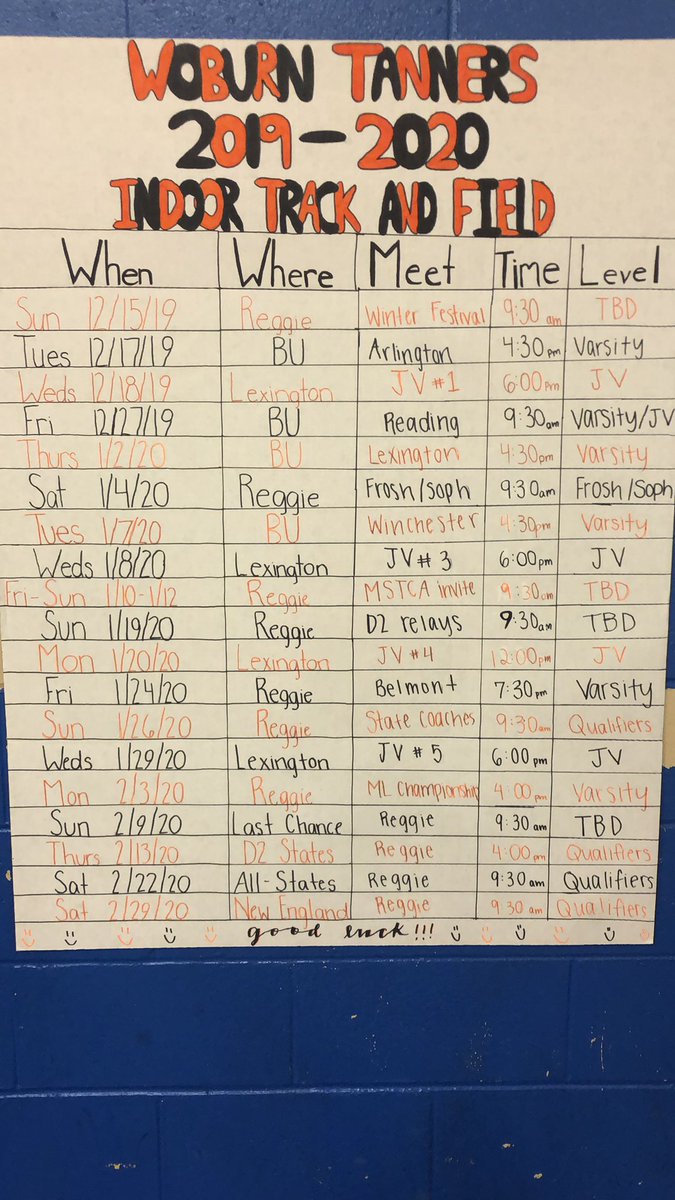 WOBURN TANNERS
2019-2020
INDOOR TRACK AND FIELD
When Where Meet Time Level
Sun 12/15/19 Reggie Winter Festival 9:30 am TBD
Tues 12/17/19 BU Arlington 4:30pm Varsity
Weds 12/18/19 Lexington JV #1 6:00pm JV
Fri 12/27/19 BU Reading 9:30am Varsity/JV
Thurs 1/2/20 BU Lexington 4:30pm Varsity
Sat 1/4/20 Reggie Frosh/Soph 9:30am Frosh/Soph
Tues 1/7/20 BU Winchester 4:30pm Varsity
Weds 1/8/20 Lexington JV# 3 6:00pm JV
Fri-Sun 1/10-1/12 Reggie MSTCA invite 9:30am TBD
Sun 1/19/20 Reggie D2 relays 9:30am TBD
Mon 1/20/20 Lexington JV #4 12:00pm JV
Fri 1/24/20 Reggie Belmont 7:30pm Varsity
Sun 1/26/20 Reggie State Coaches 9:30am Qualifiers
Weds 1/29/20 Lexington JV # 5 6:00 pm JV
Mon 2/3/20 Reggie ML Championship 4:00 pm Varsity
Sun 2/9/20 Last Chance Reggie 9:30 am TBD
Thurs 2/13/20 D2 States Reggie 4:00pm Qualifiers
Sat 2/22/20 All-States Reggie 9:30am Qualifiers
Sat 2/29/20 New England Reggie 9:30 am Qualifiers
good luck!!!